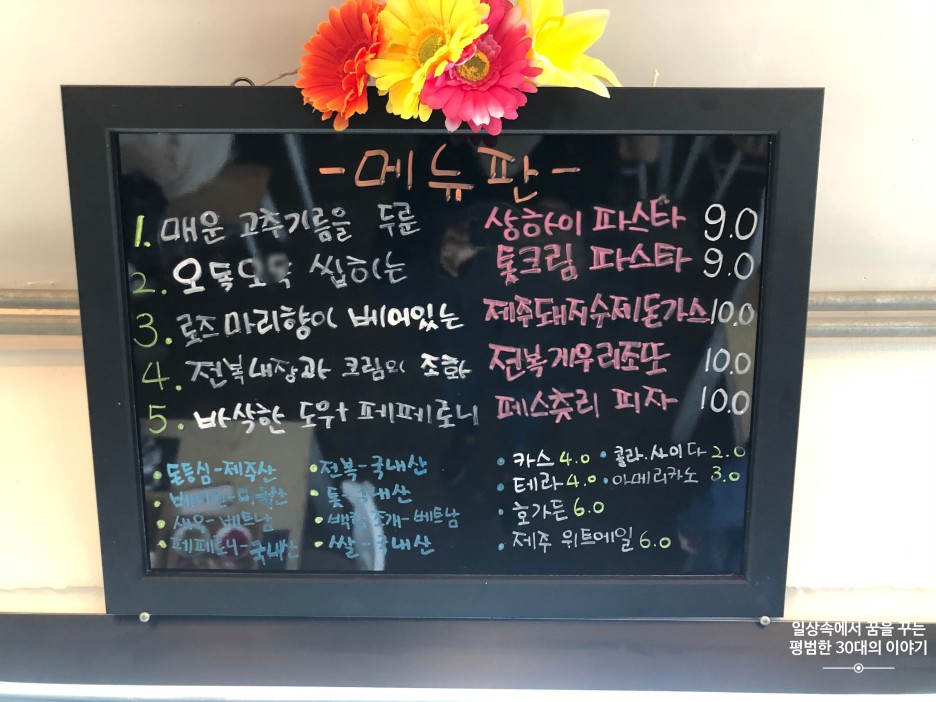 -메뉴판-
1. 매운 고추기름을 두룬 상하이 파스타 9.0
2. 오독오독 씹히는 톳크림 파스타 9.0
3. 로즈마리향이 베어있는 제주돼지수제돈가스 10.0
4. 전복내장과 크림의 조화 전복게우리조또 10.0
5. 바삭한 도우+페페로니 페스츄리 피자 10.0
• 돈등심-제주산 • 전복-국내산
• 톳-국내산
• 새우-베트남 • 백합조개-베트남
• 페페로니-국내산 • 쌀-국내산
• 카스 4.0 • 콜라.사이다 2.0
• 테라 4.0 • 아메리카노 3.0
• 호가든 6.0
• 제주 위트에일 6.0
일상속에서 꿈을 꾸는
평범한 30대의 이야기